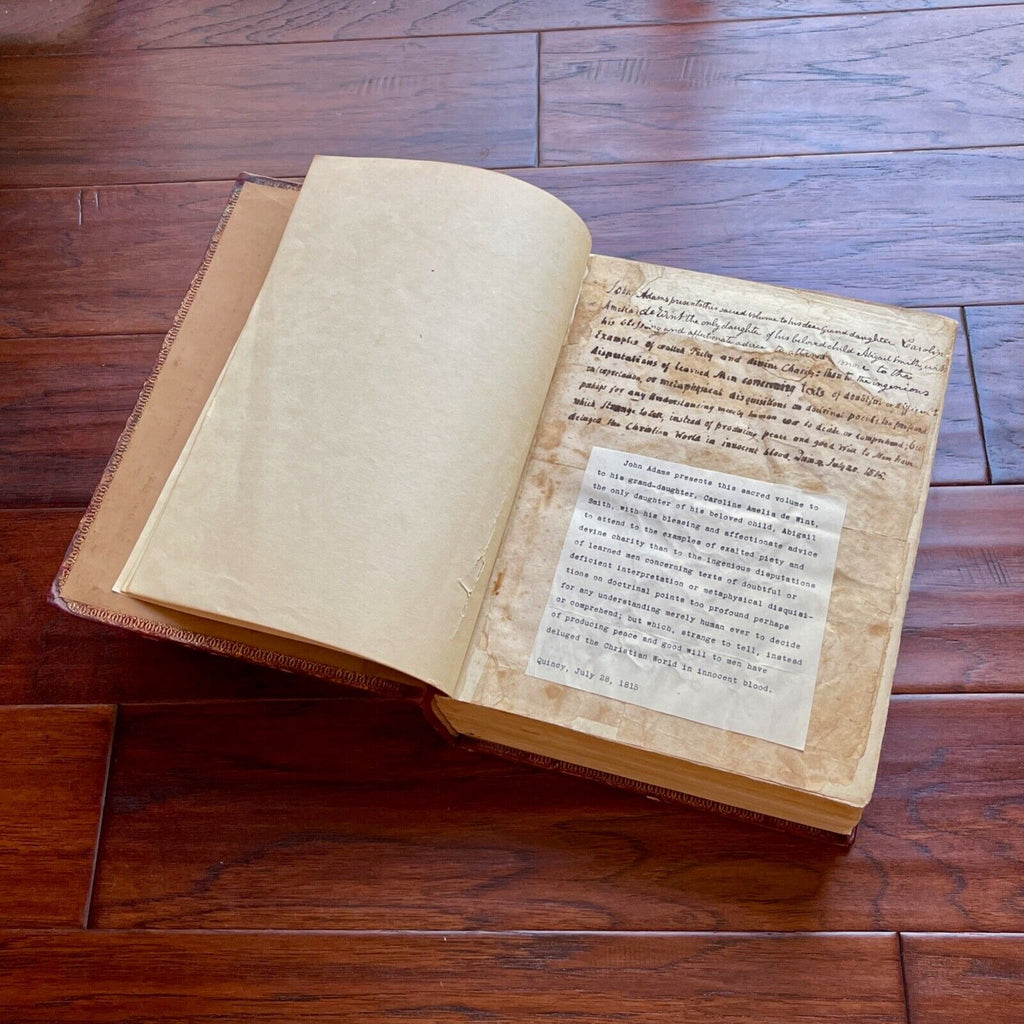 John Adams presents this sacred volume to his dear Grand daughter Caroline
Amelia de Wint the only daughter of his beloved child Abigail Smith, with
his blessing and affectionate advice to attend to the
Examples of exalted Piety and divine Charity: than to the ingenious
disputations of learned Men concerning texts of doubtful or
interpretation or metaphysical disquisitions on doctrinal points too profound
perhaps for any Understanding merely human ever to decide or comprehend; but
which strange to tell, instead of producing peace and good Will to Men have
deluged the Christian World in innocent blood. Quincy July 28. 1815.
John Adams presents this sacred volume to
his grand-daughter, Caroline Amelia de Wint,
the only daughter of his beloved child, Abigail
Smith, with his blessing and affectionate advice
to attend to the examples of exalted piety and
devine charity than to the ingenious disputations
of learned men concerning texts of doubtful or
deficient interpretation or metaphysical disquisi-
tions on doctrinal points too profound perhaps
for any understanding merely human ever to decide
or comprehend; but which, strange to tell, instead
of producing peace and good will to men have
deluged the Christian World in innocent blood.
Quincy, July 28, 1815